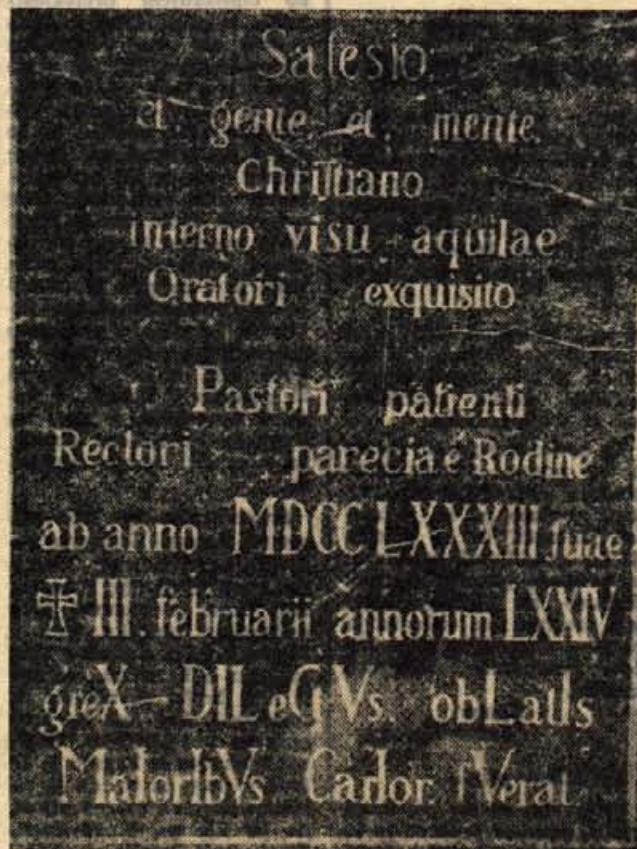 Salesio
et gente et mente
Chriſtiano
interno visu aquilae
Oratori exquisito
Pastori patienti
Rectori pareciae Rodine
ab anno MDCCLXXXIII ſuae
✠ III. februarii annorum LXXIV
greX DILeCtVs obLatIs
MaIorIbVs CarIor fVerat